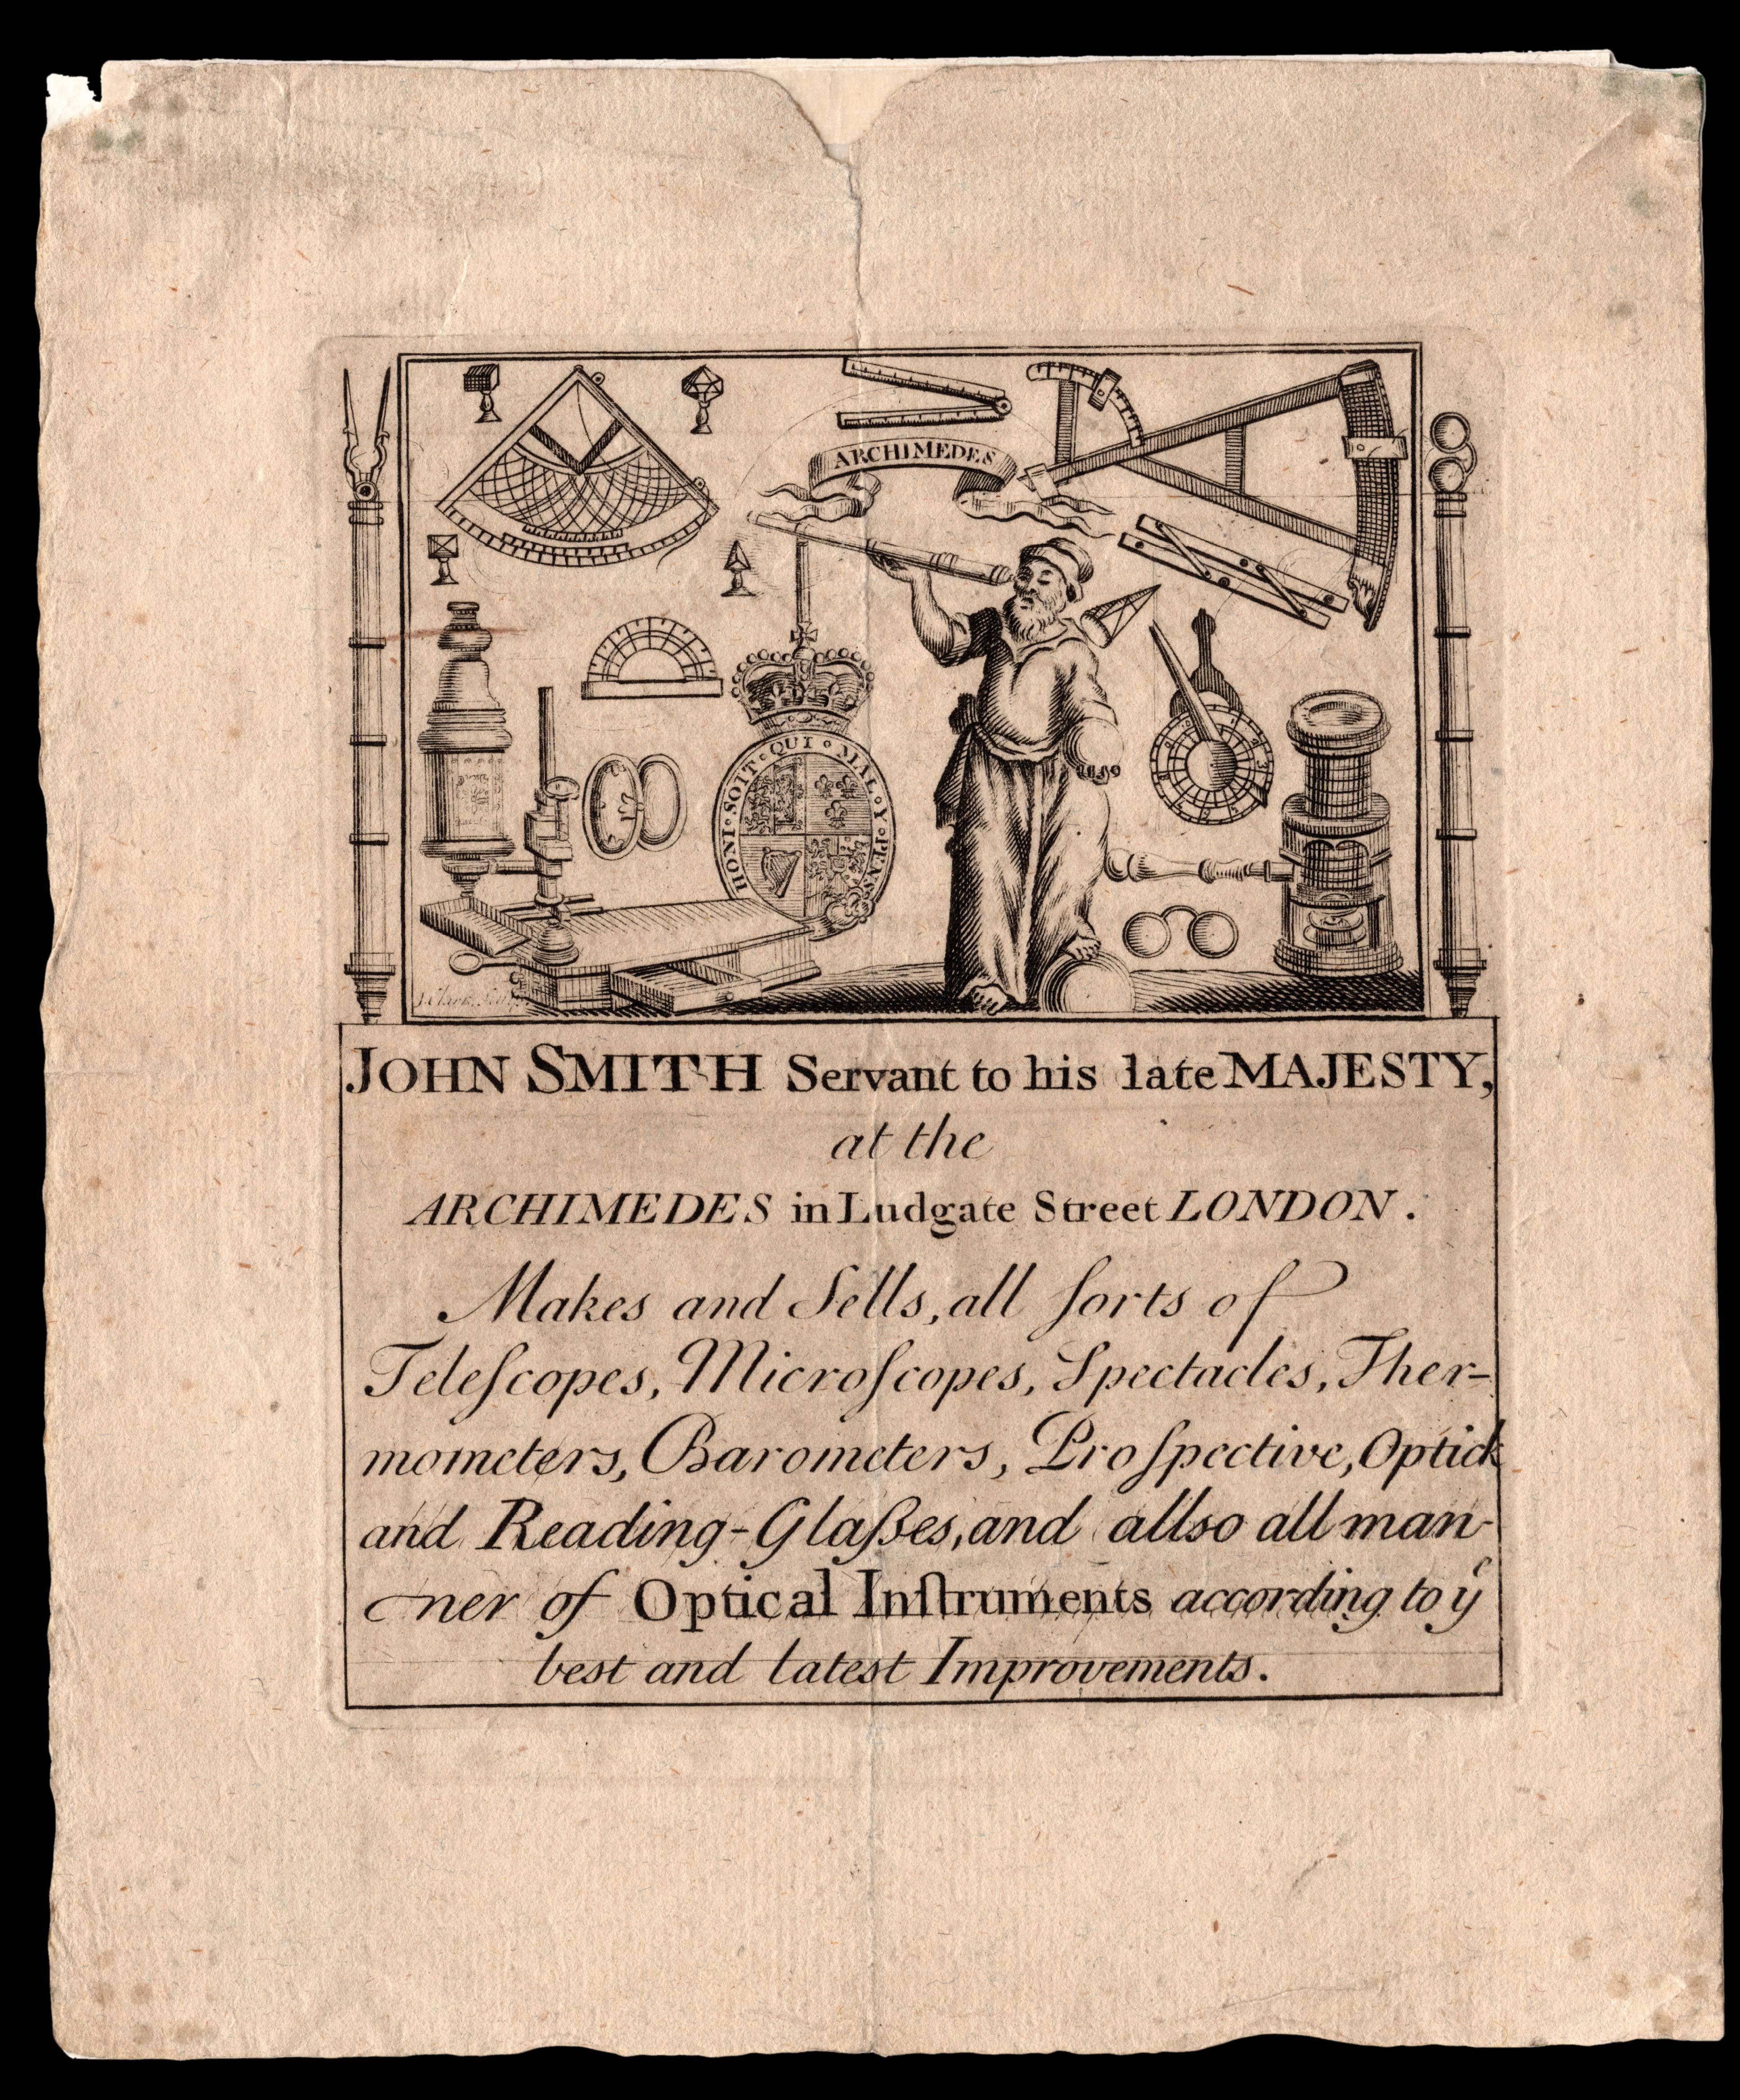 ARCHIMEDES
HONI · SOIT · QUI · MAL · Y · PENSE
JOHN SMITH Servant to his late MAJESTY,
at the
ARCHIMEDES in Ludgate Street LONDON.
Makes and Sells, all ſorts of
Teleſcopes, Microſcopes, Spectacles, Ther-
mometers, Barometers, Proſpective, Optick
and Reading-Glaſses, and allso all man-
ner of Optical Inſtruments according to yͤ
best and latest Improvements.